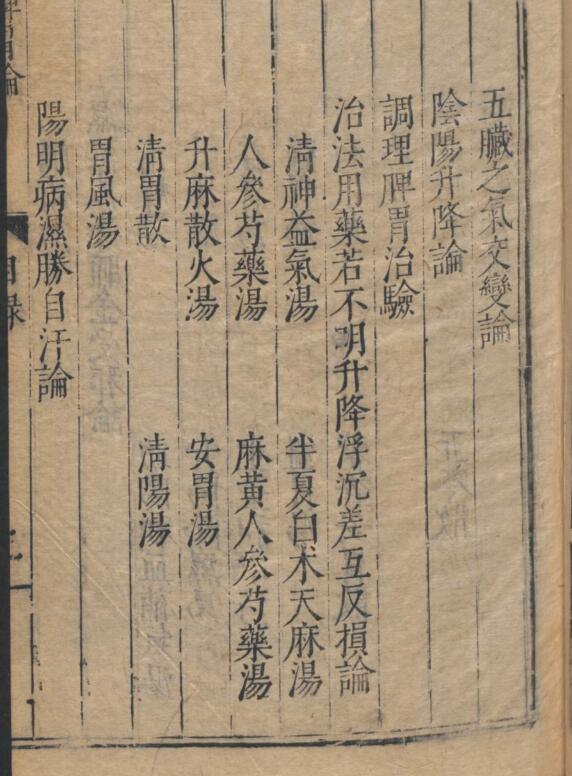 五臟之氣交變論
陰陽升降論
調理脾胃治驗
治法用藥若不明升降浮沉差互反損論
清神益氣湯 半夏白术天麻湯
人參芍藥湯 麻黃人參芍藥湯
升麻散火湯 安胃湯
清胃散 清陽湯
胃風湯
陽明病濕勝自汗論
目錄